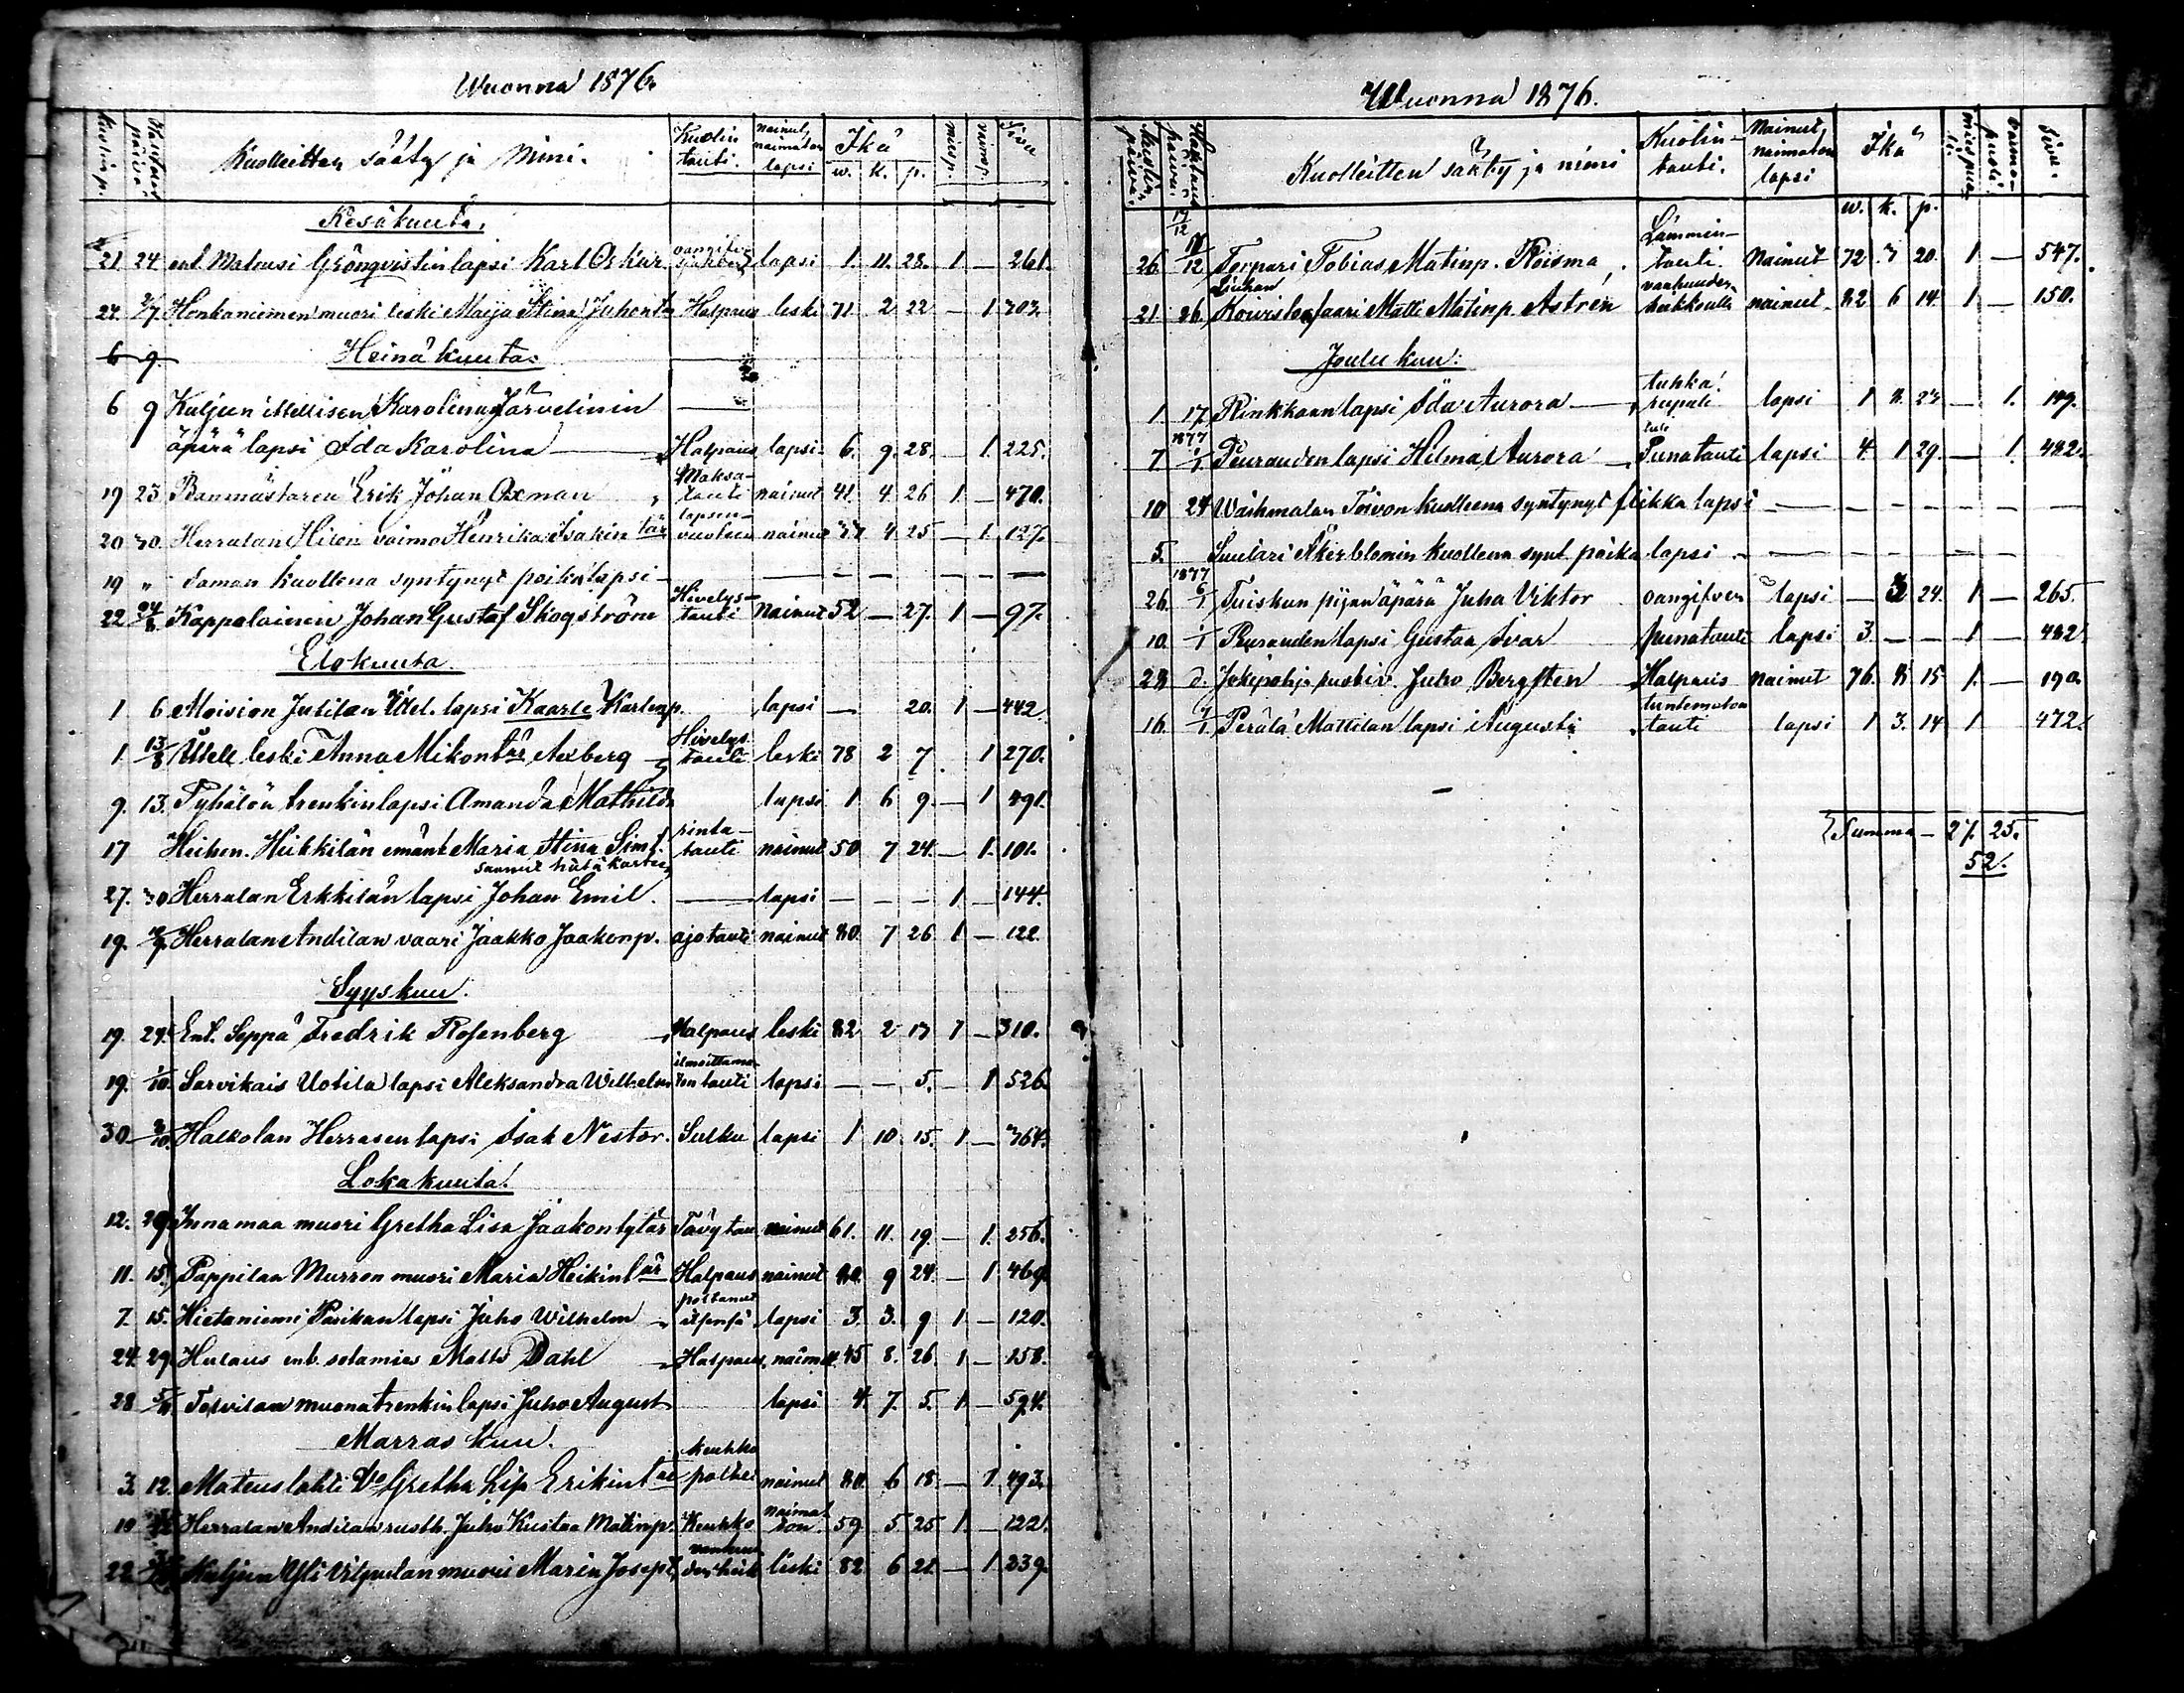 Wuonna 1876.
Kuolinp. Hautauspäivä Kuolleitten sääty ja Nimi. Kuolintauti. nainut, naimaton lapsi Ikä w. k. p. miesp. vaimop. Sivu
Kesäkuuta.
21 24 ent. Matrusi Grönqvistin lapsi Karl Oskar lapsi 1. 11. 28. 1 — 261.
24. 2/7 Honkaniemen muori leski Maija Stina Juhont. Halpaus leski 71 2 22 — 1 303.
6 9. Heinäkuuta.
6 9 Kuljun itellisen Karolina Järvelinin —
äpärä lapsi Ida Karolina — Halpaus lapsi 6. 9. 28. — 1. 225.
19 23 Banmästaren Erik Johan Oxman Maksatauti nainut 41. 4. 26 1. — 470.
20 30. Herralan Hilen vaimo Henrika Isakintär lapsenvuoteen nainut 37 4. 25 — 1. 127.
19 " Saman kuollena syntynyt poikalapsi — — — — — — —
22 24/8 Kappalainen Johan Gustaf Skogström Hivelystauti Nainut 52 — 27. 1 — 97.
Elokuuta.
1 6 Moision Jutilan lapsi Kaarle Karlenp. lapsi — 20. 1 — 442.
1. 13/8 Itell. leski Anna Mikontär Axberg Hivelystauti leski 78 2 7. 1 270.
9. 13. Pyhälön trenkin lapsi Amanda Mathilda lapsi 1 6 9. — 1 491.
17 Heiken. Heikkilän emänt Maria Stina Simt. rintatauti nainut 50 7 24. — 1. 101.
saanut hätä kasteen
27. 30 Herralan Erkkilän lapsi Johan Emil. — lapsi — — — 1 — 144.
19. Herralan Andilan vaari Jaakko Jaakonp. ajotauti nainut 80. 7 26 1 — 122.
Syyskuu.
19. 24. Ent. Seppä Fredrik Rosenberg Halpaus leski 82 2 17 1 — 310.
19. 1/10. Sarvikais Uotila lapsi Aleksandra Wilhelm. ilmoittamaton tauti lapsi — — 5. — 1 526.
30 3/10. Halkolan Herrasen lapsi Isak Nestor. Sulku lapsi 1 10 15. 1 — 364.
Lokakuuta.
12. 29. Innamaa muori Gretha Lisa Jaakontytär nainut 61. 11. 19. — 1. 256.
11. 15. Pappilan Murron muori Maria Heikintär Halpaus nainut 80. 9 24 — 1 469.
7. 15. Hietaniemi Parikan lapsi Juho Wilhelm polttanut itsensä lapsi 3. 3. 9 1 — 120.
24. 29. Hulaus ent. sotamies Matts Dahl Halpaus nainut 45 8. 26. 1 — 158.
28 5/11. Torvilan muonatrenkin lapsi Juho August lapsi 4. 7. 5. 1. — 594.
Marraskuu.
3. 12. Mateuslahti Vo Gretha Lisa Erikintär keuhko polte nainut 80. 6 18 — 1. 493.
19 Herralan Andilan rusth. Juho Kustaa Matinp. Keuhko naimaton 59. 5 25 1. — 122.
22 Kuljun Yli Vilpulan muori Maria Josept. leski 82 6 21. — 1. 239.
Wuonna 1876.
Kuolinpäivä. Hautauspäivä. Kuolleitten sääty ja nimi Kuolintauti. Nainut, naimaton lapsi Ikä w. k. p. miespuoli vaimopuoli Sivu.
17/12
26. Torpari Tobias Matinp. Roisma Lämmintauti Nainut 72 7 20. 1 — 547.
Liuhan
21. 26. Koiviston faari Matti Matinp. Astrén vanhuuden heikkoutta nainut 82 6 14. 1 — 150.
Joulukuu.
1. 17. Rinkkaan lapsi Ida Aurora — tuhkarupuli lapsi 1 8. 23 — 1. 119.
1877
7 1/1 Peurauden lapsi Hilma Aurora — Punatauti lapsi 4. 1 29. — 1. 482.
10 24 Waihmalan Toivon kuolleena syntynyt flikka lapsi — — — — — — —
5. Suutari Åkerblomin kuollena synt. poika lapsi — — — — — — —
1877
26. 6/1 Tuiskun pijan äpärä Juha Viktor oangifven lapsi — 24. 1. — 265.
10. 1/1 Peurauden lapsi Gustaa Ivar punatauti lapsi 3. — — 1 — 482.
28 Jokipohja rustiv. Juho Bergsten Halpaus nainut 76. 8 15 1. — 190.
16. 7/1. Perälä Mattilan lapsi Augusti tuntematon tauti lapsi 1 3. 14 1 472.
Summa — 27. 25.
52.